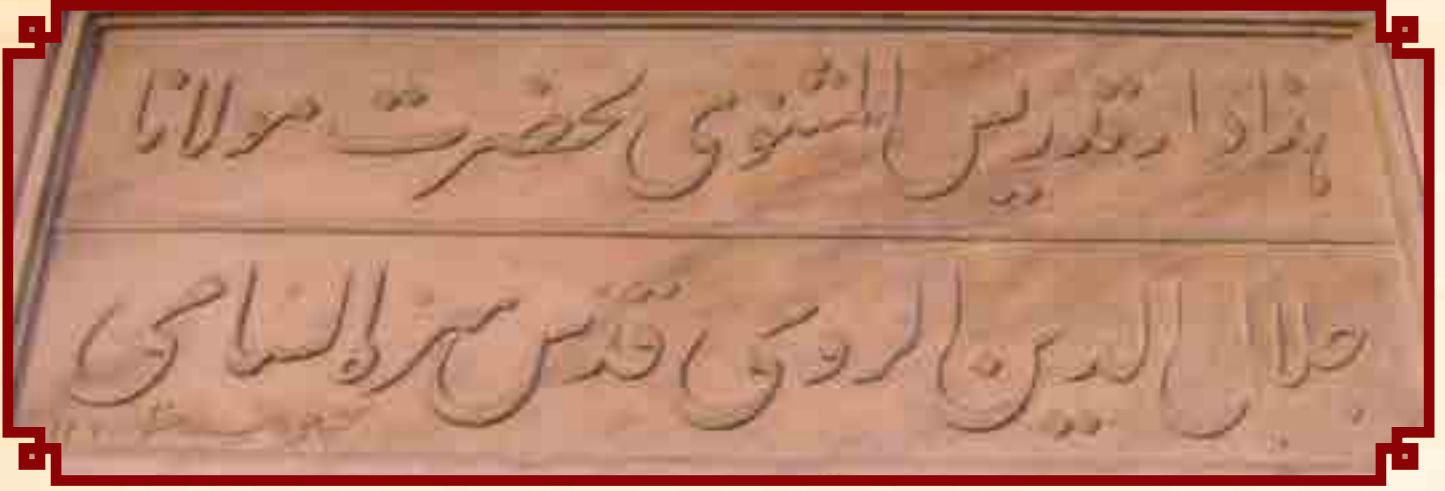 هذا دار تدریس المثنوی لحضرت مولانا
جلال الدین الرومی قدس سره السامی